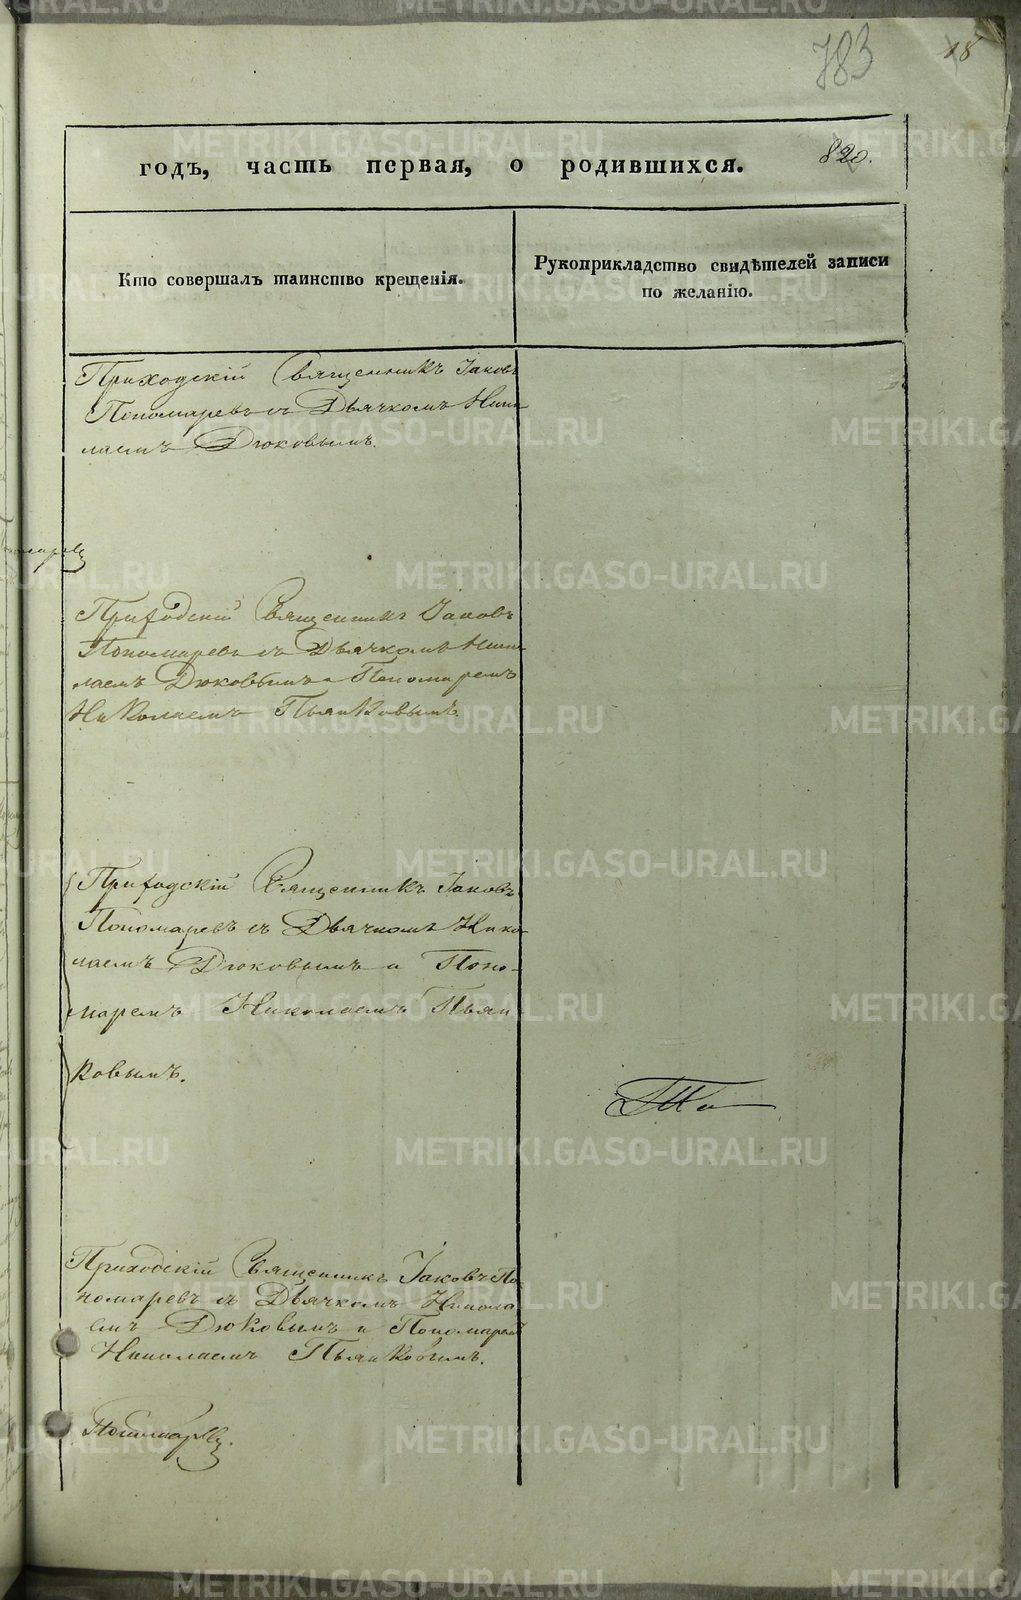 783
18
820.
годъ, часть первая, о родившихся.
Кто совершалъ таинство крещенія.
Рукоприкладство свидѣтелей записи
по желанію.
Приходскій Священникъ Іаковъ
Пономаревъ съ Дьячкомъ Нико-
лаемъ Дюковымъ.
Приходскій Священникъ Іаковъ
Пономаревъ съ Дьячкомъ Нико-
лаемъ Дюковымъ и Пономаремъ
Николаемъ Пьянковымъ.
Приходскій Священникъ Іаковъ
Пономаревъ съ Дьячкомъ Нико-
лаемъ Дюковымъ и Поно-
маремъ Николаемъ Пьян-
ковымъ.
Приходскій Священникъ Іаковъ По-
номаревъ съ Дьячкомъ Никола-
емъ Дюковымъ и Пономаремъ
Николаемъ Пьянковымъ.
METRIKI.GASO-URAL.RU